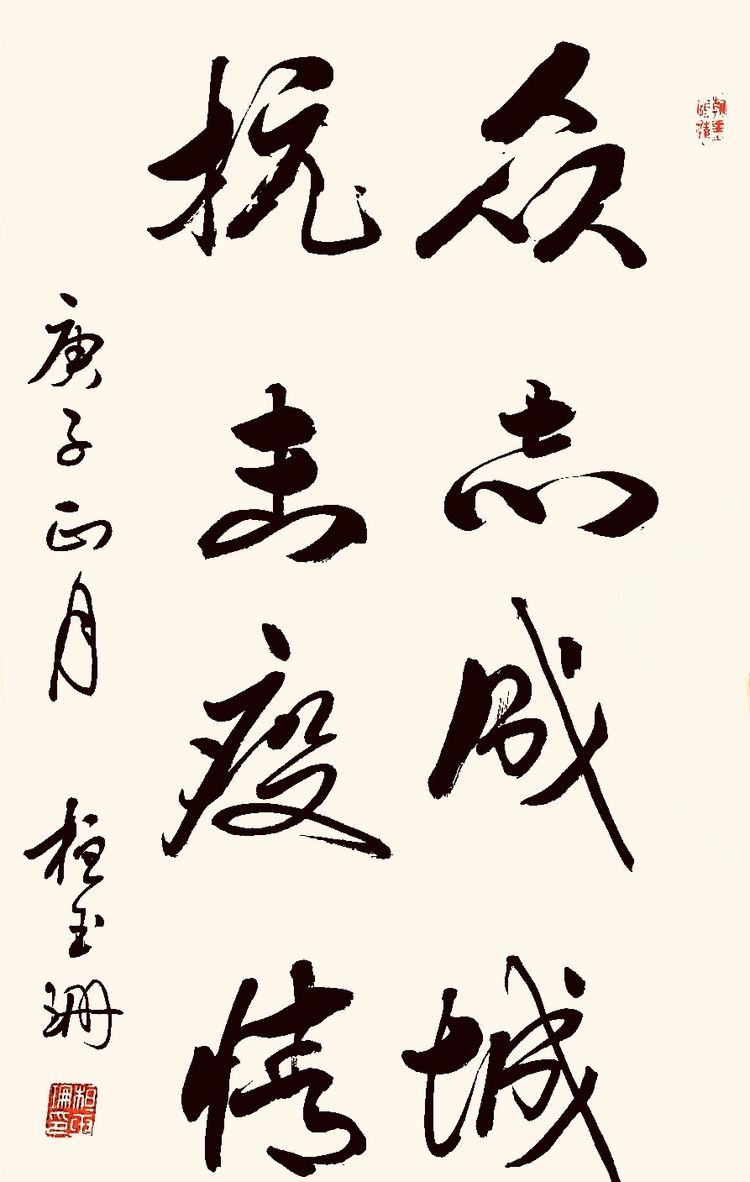 众志成城
抗击疫情
庚子正月 桓玉珊